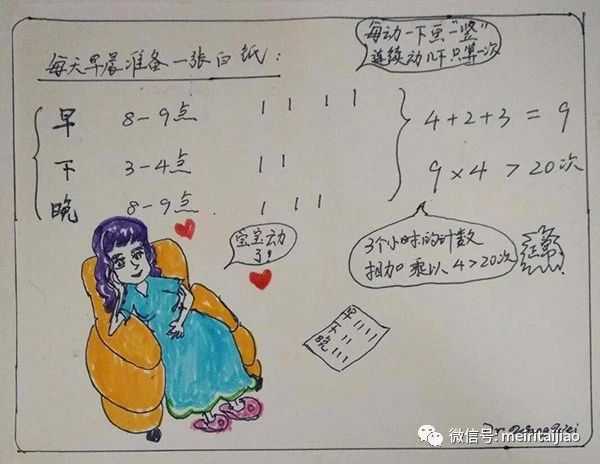 每动一下画“一竖”
连续动几下只算一次
每天早晨准备一张白纸：
早 8-9点 | | | |
下 3-4点 | |
晚 8-9点 | | |
4+2+3=9
9×4>20次
宝宝动
了！
3个小时的计数
相加乘以4>20次
正常
早 ||||
下 ||
晚 |||
微信号: meiritaijiao